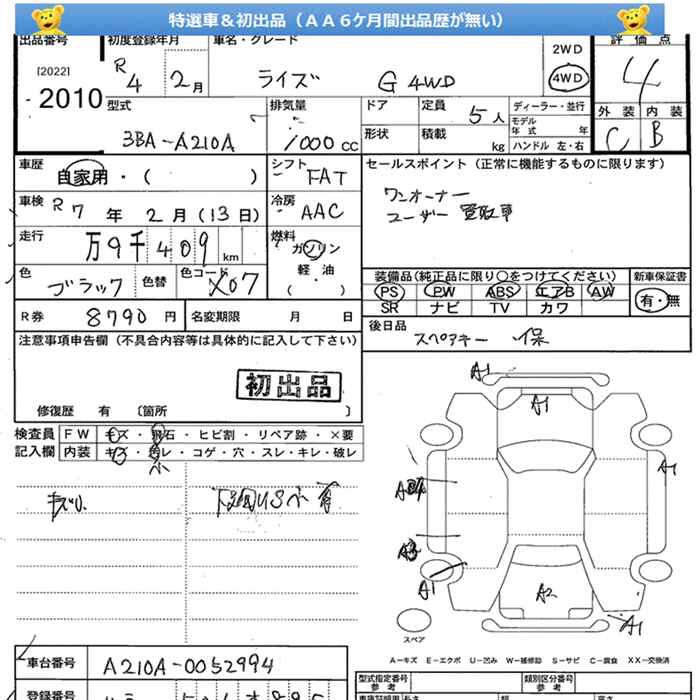 特選車＆初出品（ＡＡ６ケ月間出品歴が無い）
出品番号
[2022]
2010
初度登録年月
R 4 2月
車名・グレード
ライズ G 4WD
2WD
4WD
評価点
4
外装 内装
C B
型式
3BA-A210A
排気量
1000 CC
ドア
定員 5人
形状
積載 kg
ディーラー・並行
モデル年式 年
ハンドル 左・右
車歴
自家用・（ ）
シフト
FAT
セールスポイント（正常に機能するものに限ります）
ワンオーナー
ユーザー買取車
車検 R 7年 2月（13日）
冷房
AAC
走行
万9千409 km
燃料
ガソリン
軽・油
（ ）
色 ブラック
色替
色コード X07
装備品（純正品に限り○をつけてください）
PS PW ABS エアB AW
SR ナビ TV カワ
新車保証書
有・無
R券 8790円
名変期限 月 日
後日品
スペアキー 保
注意事項申告欄（不具合内容等は具体的に記入して下さい）
初出品
修復歴 有 〔箇所 〕
検査員記入欄
FW キズ・飛石・ヒビ割・リペア跡・×要
内装 キズ・汚レ・コゲ・穴・スレ・キレ・破レ
小
キズ小
A1
A1
A1
A1
A2
A1
スペア
A－キズ E－エクボ U－凹み W－補修跡 S－サビ C－腐食 XX－交換済
車台番号
A210A-0052994
登録番号
型式指定番号
参考
類別区分番号
参考